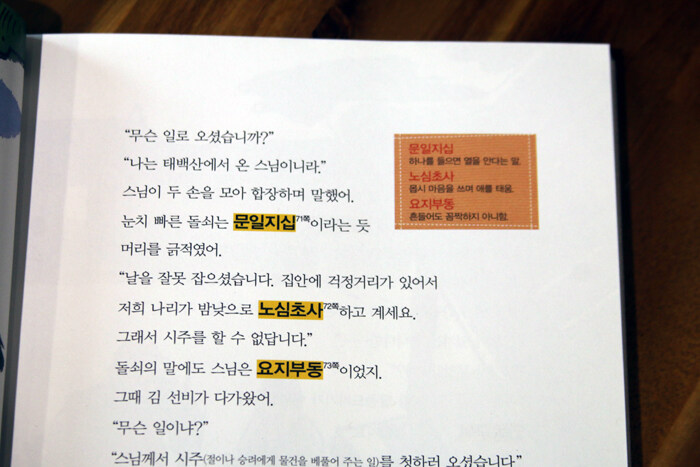 "무슨 일로 오셨습니까?"
"나는 태백산에서 온 스님이니라."
스님이 두 손을 모아 합장하며 말했어.
눈치 빠른 돌쇠는 문일지십71쪽이라는 듯
머리를 긁적였어.
"날을 잘못 잡으셨습니다. 집안에 걱정거리가 있어서
저희 나리가 밤낮으로 노심초사72쪽하고 계세요.
그래서 시주를 할 수 없답니다."
돌쇠의 말에도 스님은 요지부동73쪽이었지.
그때 김 선비가 다가왔어.
"무슨 일이냐?"
"스님께서 시주(절이나 승려에게 물건을 베풀어 주는 일)를 청하러 오셨습니다"
문일지십
하나를 들으면 열을 안다는 말.
노심초사
몹시 마음을 쓰며 애를 태움.
요지부동
흔들어도 꼼짝하지 아니함.